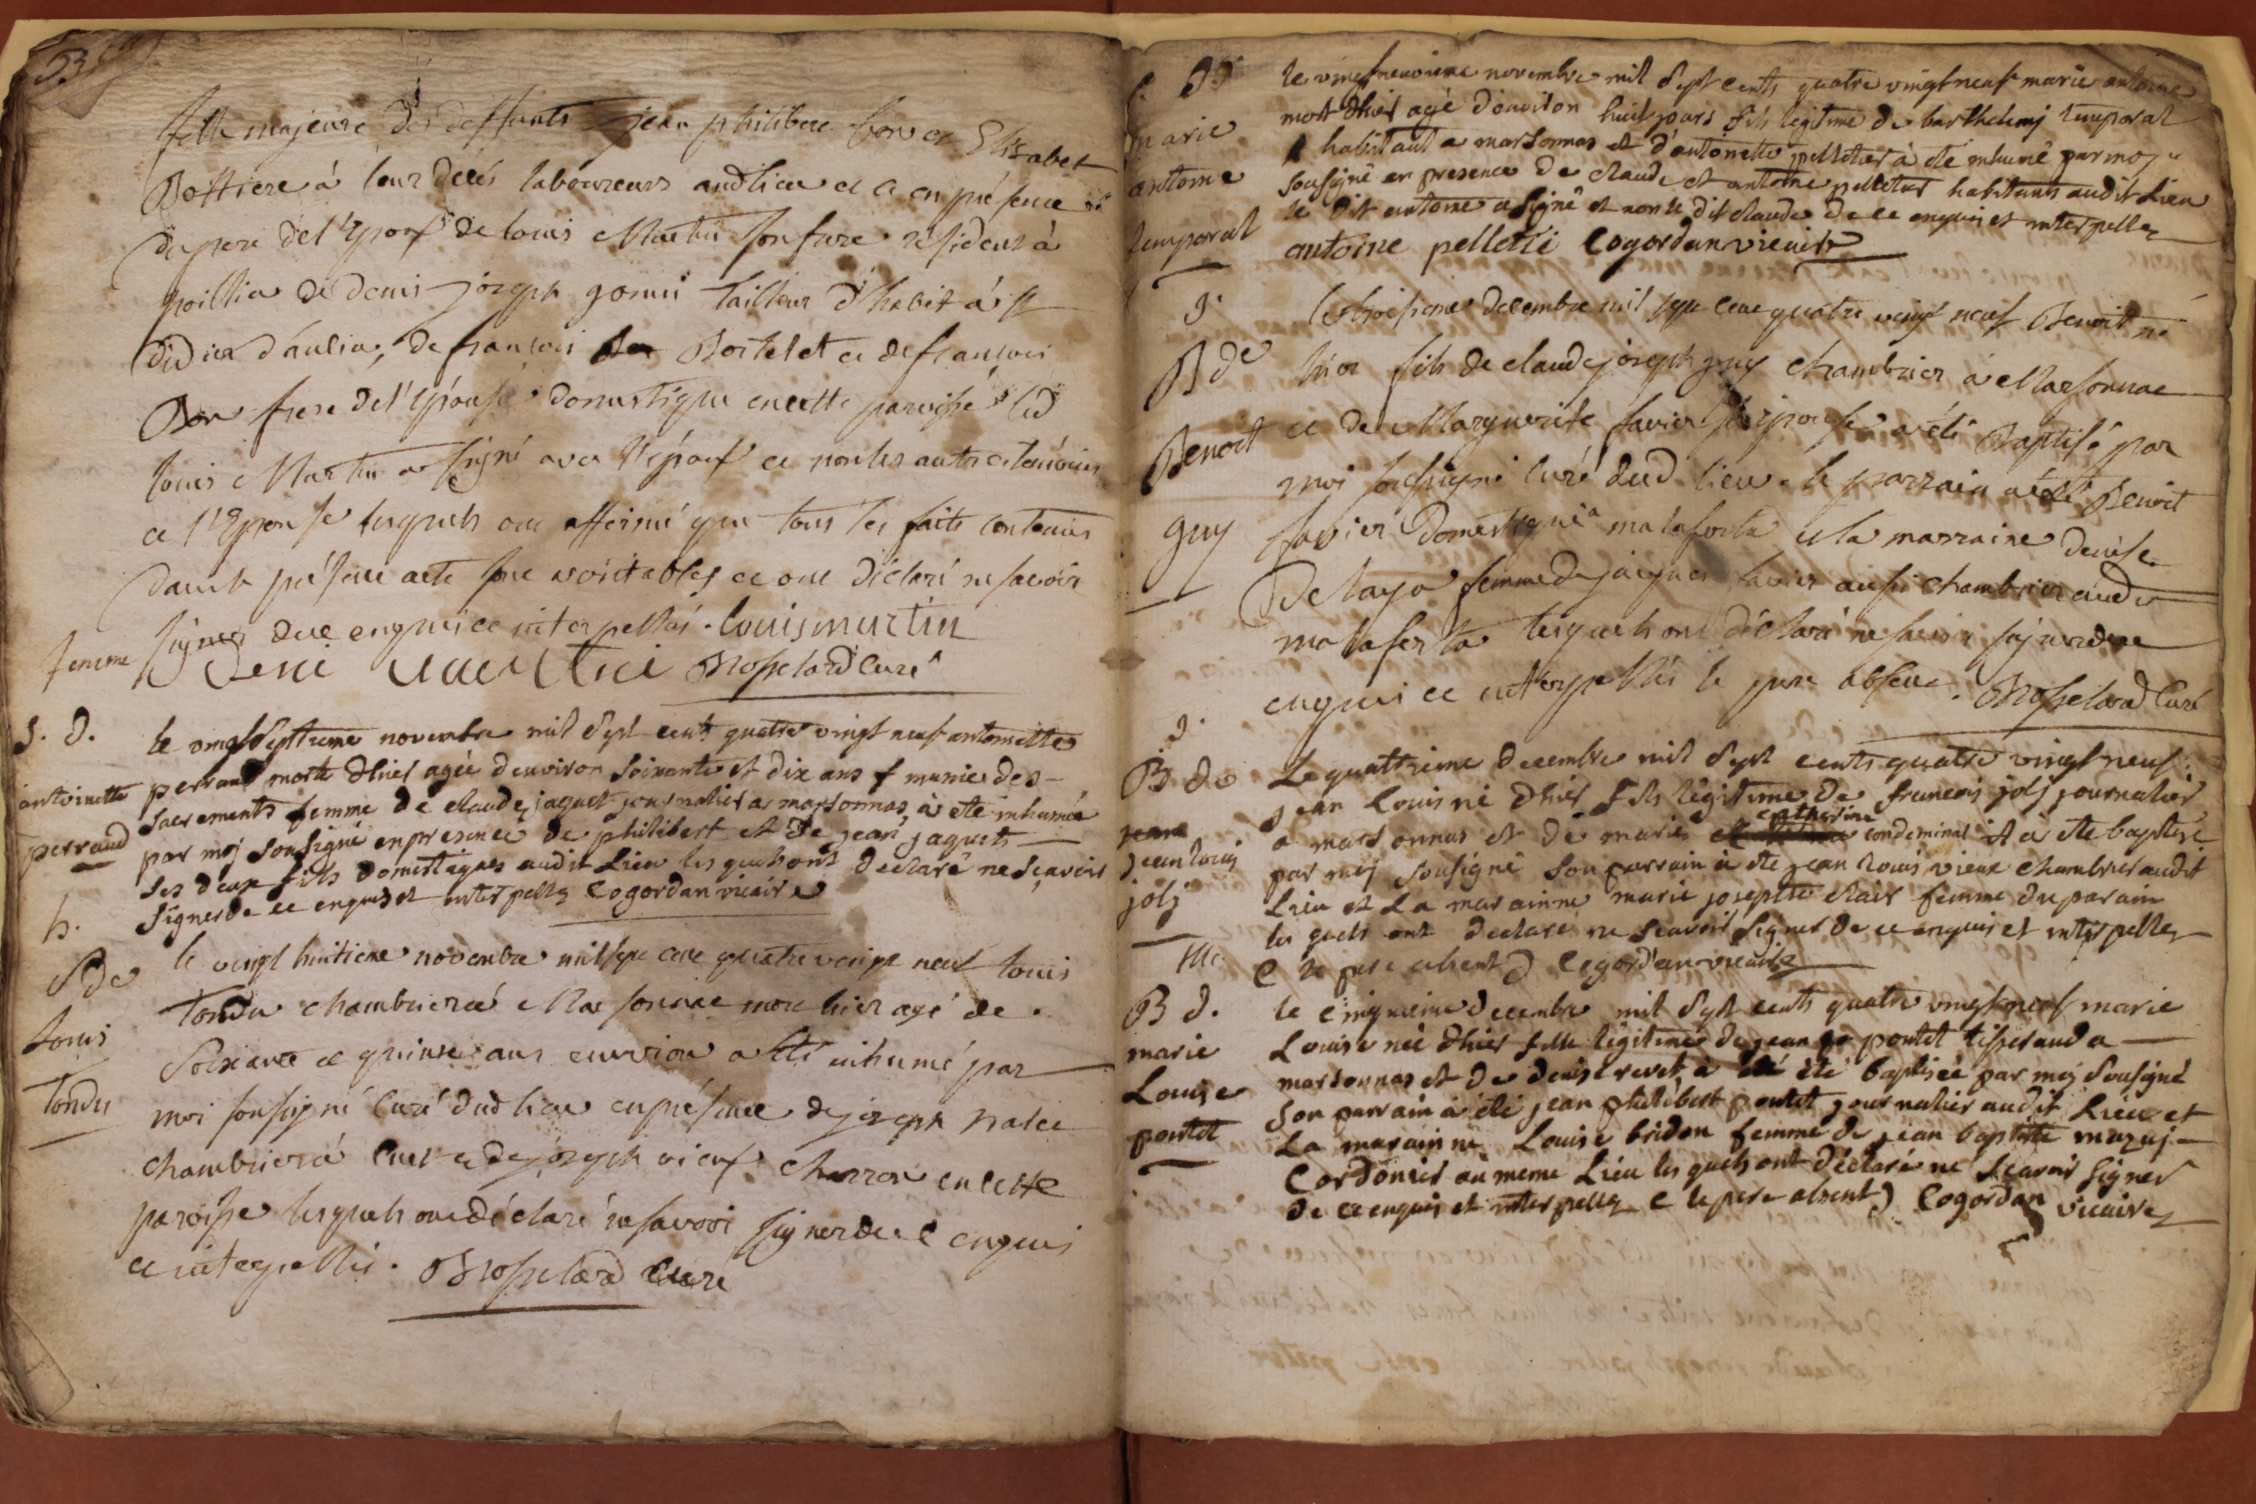 53
fille majeure des deffunts jean philibert bon et Elisabet
Bottiere à leur décés laboureurs aud lieu et ce en présence
du pere de l'Epoux de louis Martin son frere résident à
poillia de denis joseph gonin tailleur d'habit à st
didier d'aulia, de francois Bortelet et de francois
Bon frere de l'épouse domestique en cette paroisse led
louis Martin a signé avec l'époux et non les autres témoins
et l'Epouse lesquels ont affirmé que tous les faits contenus
dans le présent acte sont veritables et ont déclaré ne savoir
signer de ce enquis et interpellés. louis martin
femme
Brosselard Curé
S. d.
antoinette
perraud
le vingt septieme novembre mil sept cent quatre vingt neuf antoinette
perraud morte dhier agée denviron soixante et dix ans munie des
sacrements femme de claude jaquet journalier a marsonnas à eté inhumée
par moj sousigné en presence de philibert et de jean jaquet
ses deux fils domestiques audit Lieu les quels ont declaré ne sçavoir
signer de ce enquis et interpellez Cogordan vicaire
h.
S de
louis
Tondu
le vingt huitieme novembre mil sept cent quatre vingt neuf louis
Tondu chambrier à Marsonnac mort hier agé de
Soixante et quinze ans environ a été inhumé par
moi soussigné Curé dud lieu en présence de joseph
chambrier à et de joseph vieux charron en cette
paroisse lesquels ont déclaré ne savoir signer de ce enquis
et interpellés. Brosselard Curé
S. d
marie
antoine
temporal
le vingt neuvieme novembre mil sept cents quatre vingt neuf marie antoine
mort dhier agé d'environ huit jours fils legitime de barthelemj temporal
habitant a marsonnas et d'antoinette pelletier à eté inhumé par moj
sousigné en presence de claude et antoine pelletier habitants audit Lieu
le dit antoine a signé et non le dit claude de ce enquis et interpellez
antoine pelletié Cogordan vicaire
g.
B de
Benoit
guy
le troisieme decembre mil sept cent quatre vingt neuf Benoit né
hier fils de claude joseph guy chambrier à Marsonnac
et de Marguerite favier son épouse a été Baptisé par
moi soussigné Curé dud lieu. le parrain a été Benoit
favier Domestique à malaferta et la marraine denise
Delaya femme de jacques favier aussi chambrier aud
malaferta lesquels ont déclaré ne savoir signer de ce
enquis et interpellés le pere absent. Brosselard Curé
g.
B de
jean
jean louis
jolj
Le quattrieme decembre mil sept cents quatre vingt neuf
jean Louis né dhier fils légitime de francois jolj journalier
a marsonnas et de marie catherine condeminal il à eté baptisé
par moj sousigné son parrain à eté jean Louis vieux chambrier audit
Lieu et La marainne marie josephte clair femme du parain
les quels ont declaré ne scavoir signer de ce enquis et interpellez
( le pere absent ) Cogordan vicaire
B d.
marie
Louise
pontet
le cinquieme decembre mil sept cents quatre vingt neuf marie
Louise née dhier fille légitime de jean pontet tisserand a
marsonnas et de denise revet à été baptisée par moj sousigné
son parrain à été jean philibert pontet journalier audit Lieu et
La marainne Louise bridon femme de jean baptiste mazuj
Cordonier au meme Lieu les quels ont déclaré ne scavoir signer
de ce enquis et interpellez ( le pere absent ) Cogordan vicaire